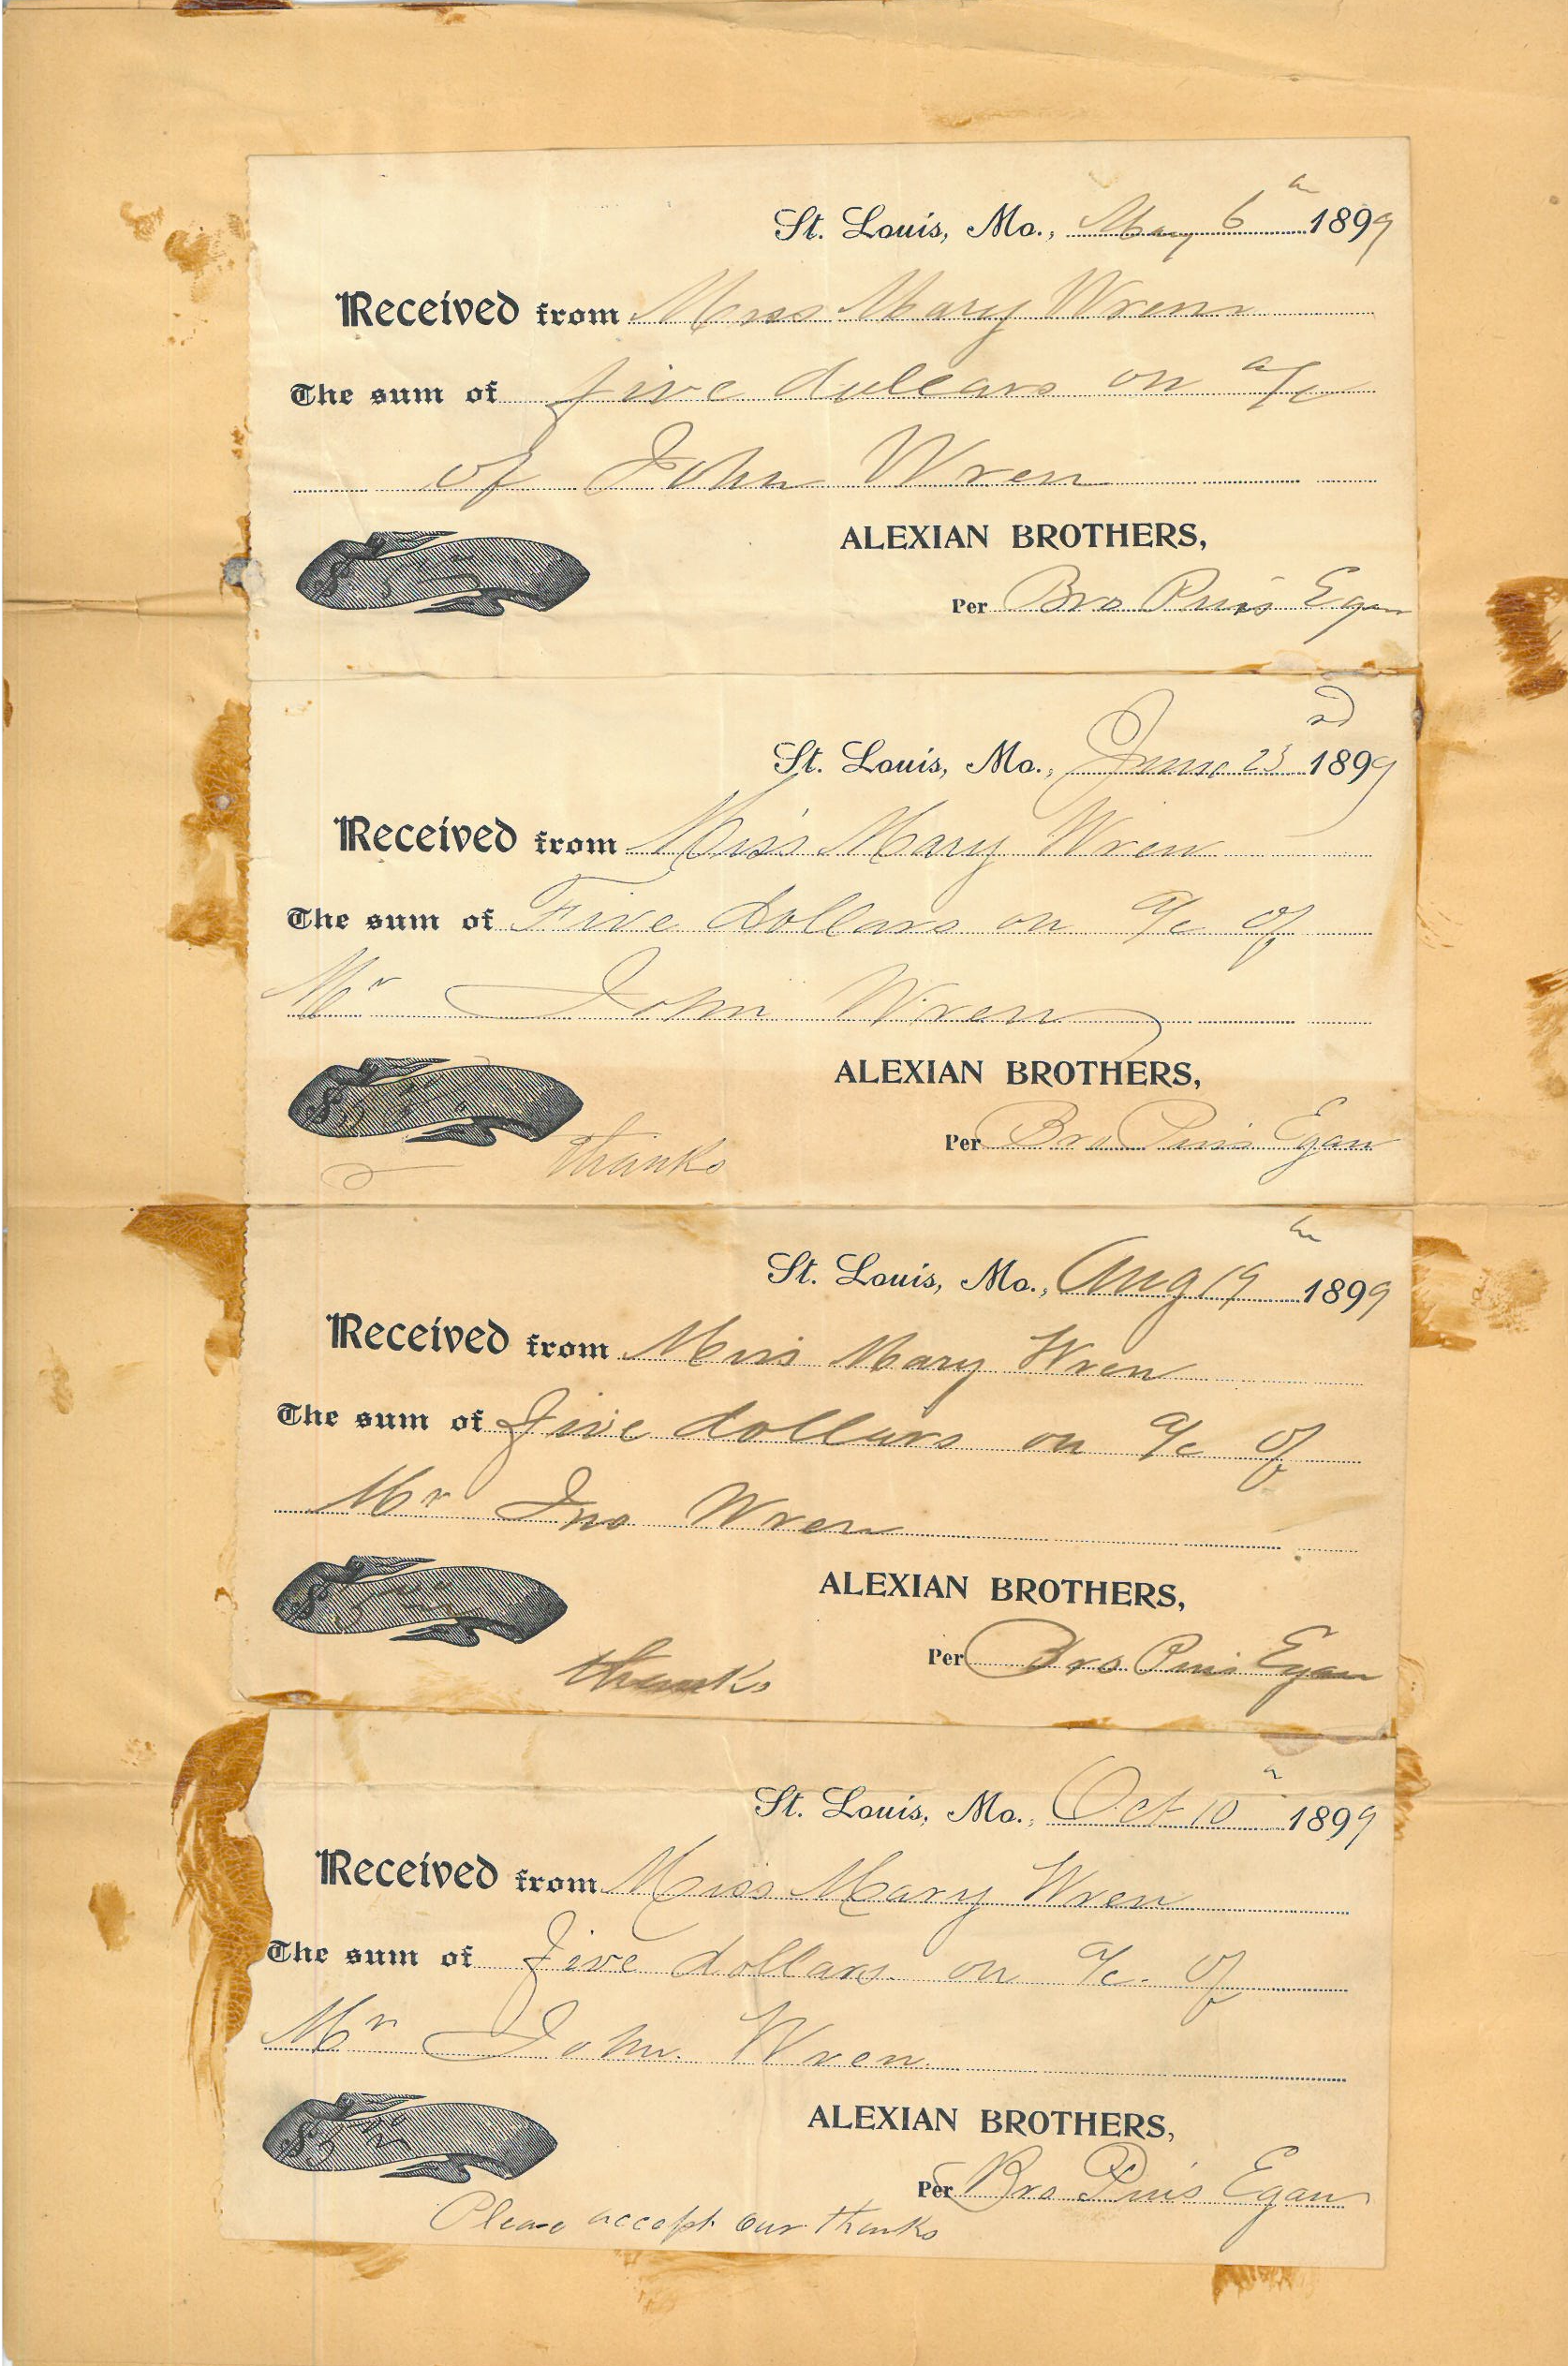 St. Louis, Mo., May 6th 1899
Received from Miss Mary Wren
The sum of five dollars on a/c
of John Wren
ALEXIAN BROTHERS,
$5
Per Bro Pius Egan
St. Louis, Mo., June 23rd 1899
Received from Miss Mary Wren
The sum of Five dollars on a/c of
Mr John Wren
ALEXIAN BROTHERS,
$5
Per Bro Pius Egan
thanks
St. Louis, Mo., Aug 19th 1899
Received from Miss Mary Wren
The sum of five dollars on a/c of
Mr Jno Wren
ALEXIAN BROTHERS,
$5
Per Bro Pius Egan
thanks
St. Louis, Mo., Oct 10th 1899
Received from Miss Mary Wren
The sum of five dollars on a/c. of
Mr John Wren.
ALEXIAN BROTHERS,
$5
Per Bro Pius Egan
Please accept our thanks